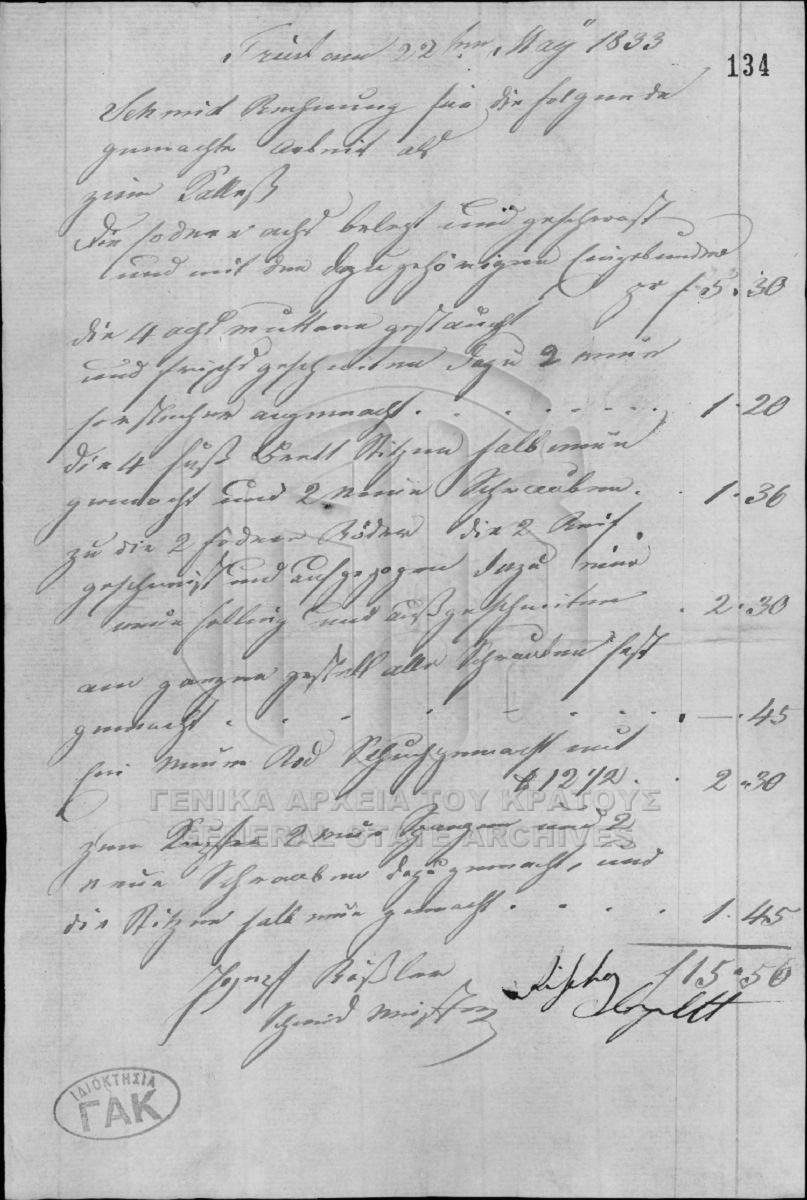 Triest am 22ten May 1833
134
Schmid Rechnung für die folgende
gemachte arbeit als
zum
die fodere achs belegt und geschweist
und mit den dazu gehörigen Eingebunden
pr f 5.30
die 4 achs muttern gestaucht
und frisch geschniten dazu 2 neue
angemacht . . . . . . . 1.20
die 4 fuß brett Stitzen halb neu
gemacht und 2 neue Schrauben . . 1.36
zu die 2 fodere Räder die 2 Reif
geschweist und aufgezogen dazu eine
neue felling und . 2.30
am ganzen gestell alle Schrauben fest
gemacht . . . . . . . . — .45
Ein neuen Rad Schuh gemacht mit
12 1/2 . . 2.30
zum 2 neue Spangen und 2
neue Schrauben dazu gemacht, und
die Stitzen halb neu gemacht . . . . 1.45
f 15.56
Josepf Rößler
Schmid Meister
ΓΕΝΙΚΑ ΑΡΧΕΙΑ ΤΟΥ ΚΡΑΤΟΥΣ
GENERAL STATE ARCHIVES
ΙΔΙΟΚΤΗΣΙΑ
ΓΑΚ